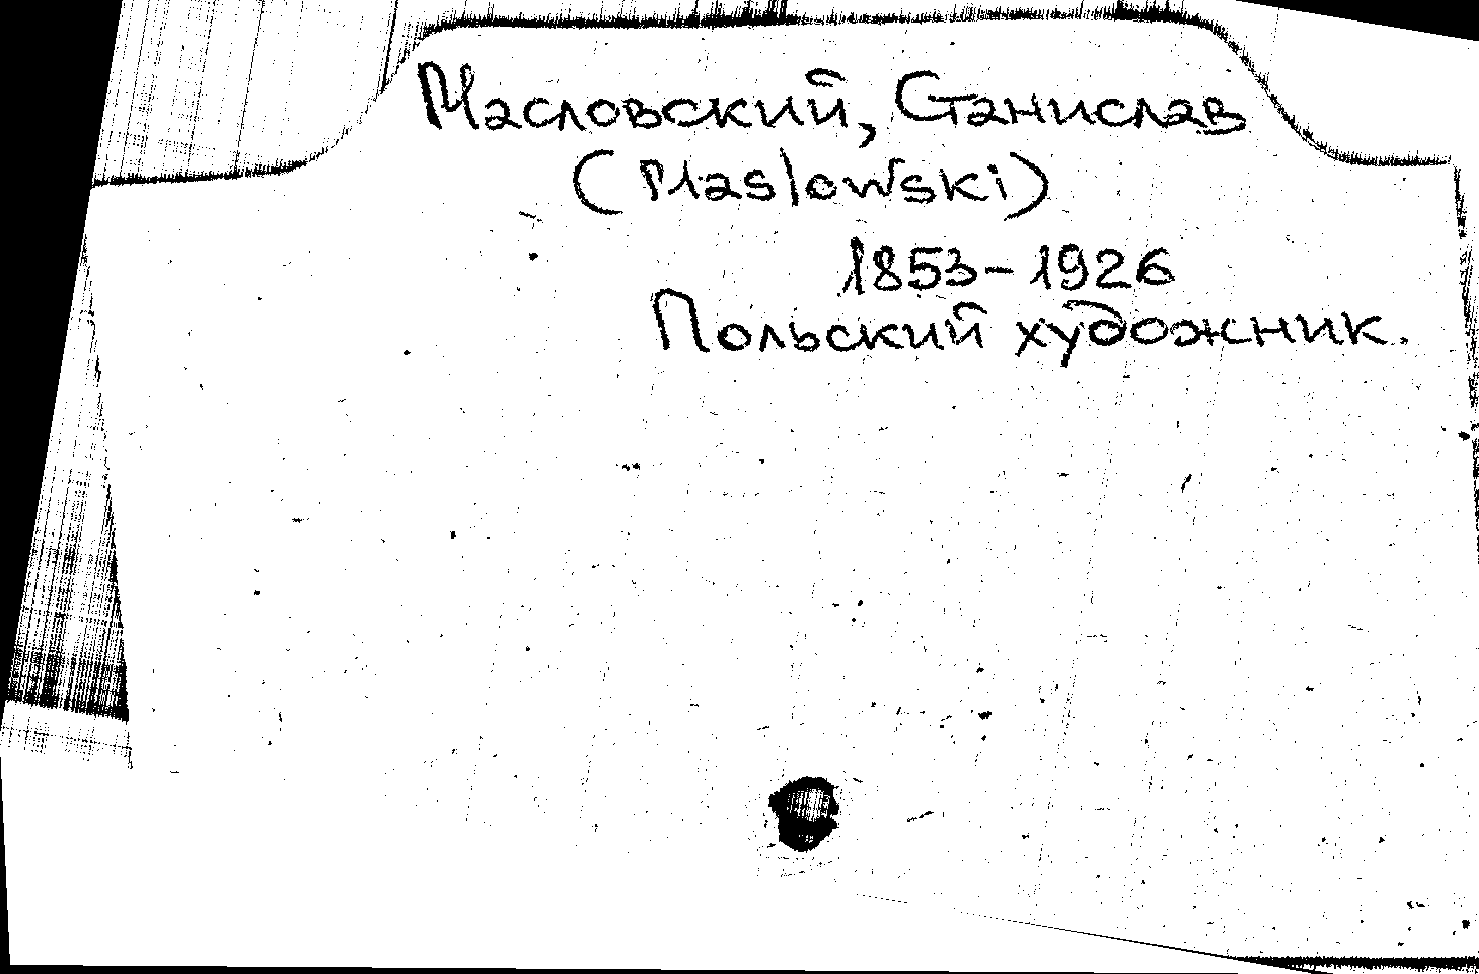 Масловский, Станислав
(Maslowski)
1853-1926
Польский художник.